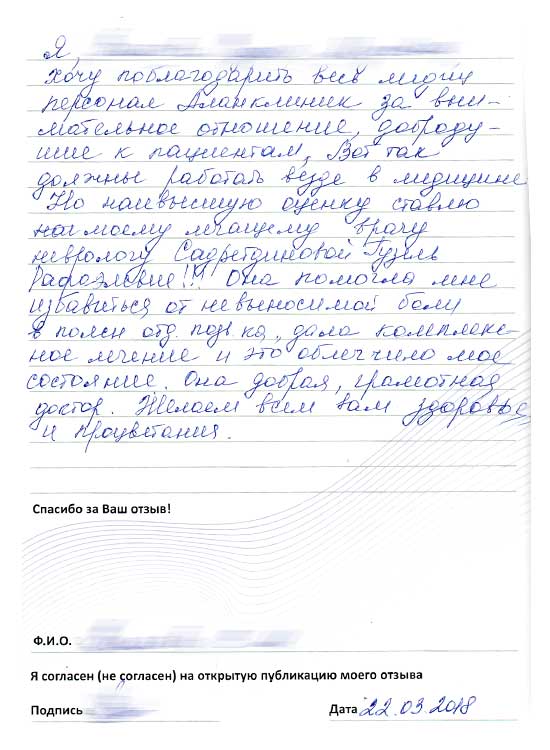 Я,
хочу поблагодарить весь
персонал Аланклиник за вни-
мательное отношение, доброду-
шие к пациентам, Вот так
должны работать везде в медицине
Но наивысшую оценку ставлю
моему лечащему врачу
неврологу Садретдиновой Гузель
Рафаэльевне!!! Она помогла мне
избавиться от невыносимой боли
в поясн отд. позв-ка, дала комплекс-
ное лечение и это облегчило мое
состояние. Она добрая, грамотная
доктор. Желаем всем вам здоровье
и процветания.
Спасибо за Ваш отзыв!
Ф.И.О.
Я согласен (не согласен) на открытую публикацию моего отзыва
Подпись
Дата 22.03.2018